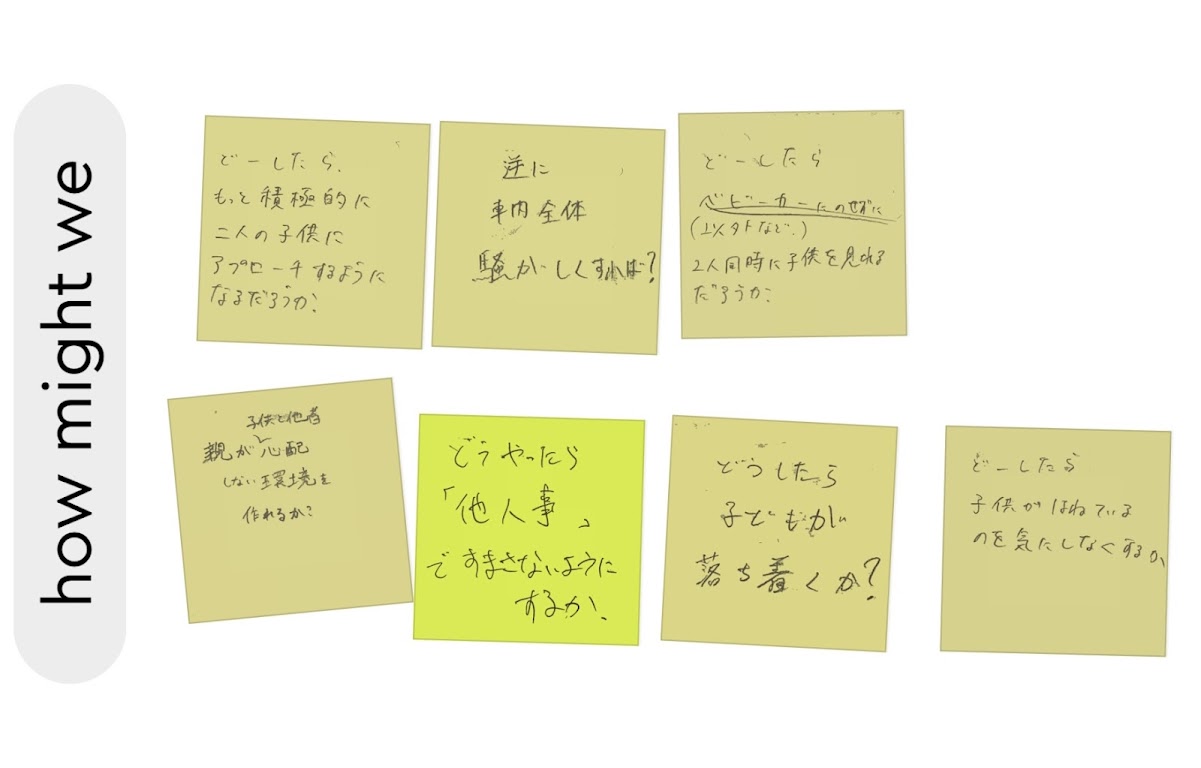 how might we
どーしたら、
もっと積極的に
二人の子供に
アプローチするように
なるだろうか。
逆に
車内全体
騒がしくすれば?
どーしたら
ベビーカーにのせずに
(以外などで)
2人同時に子供を見れる
だろうか。
子供と他者
親が心配
しない環境を
作れるか?
どうやったら
「他人事」
ですまさないように
するか、
どうしたら
子どもが
落ち着くか?
どーしたら
子供がはねている
のを気にしなくするか、